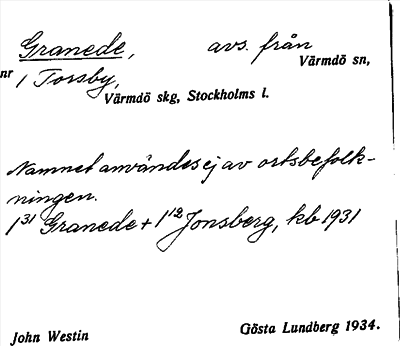 Granede, avs. från
Värmdö sn,
nr 1 Torsby,
Värmdö skg, Stockholms l.
Namnet användes ej av ortsbefolk-
ningen.
1³¹ Granede + 1¹² Jonsberg, kb 1931
John Westin
Gösta Lundberg 1934.